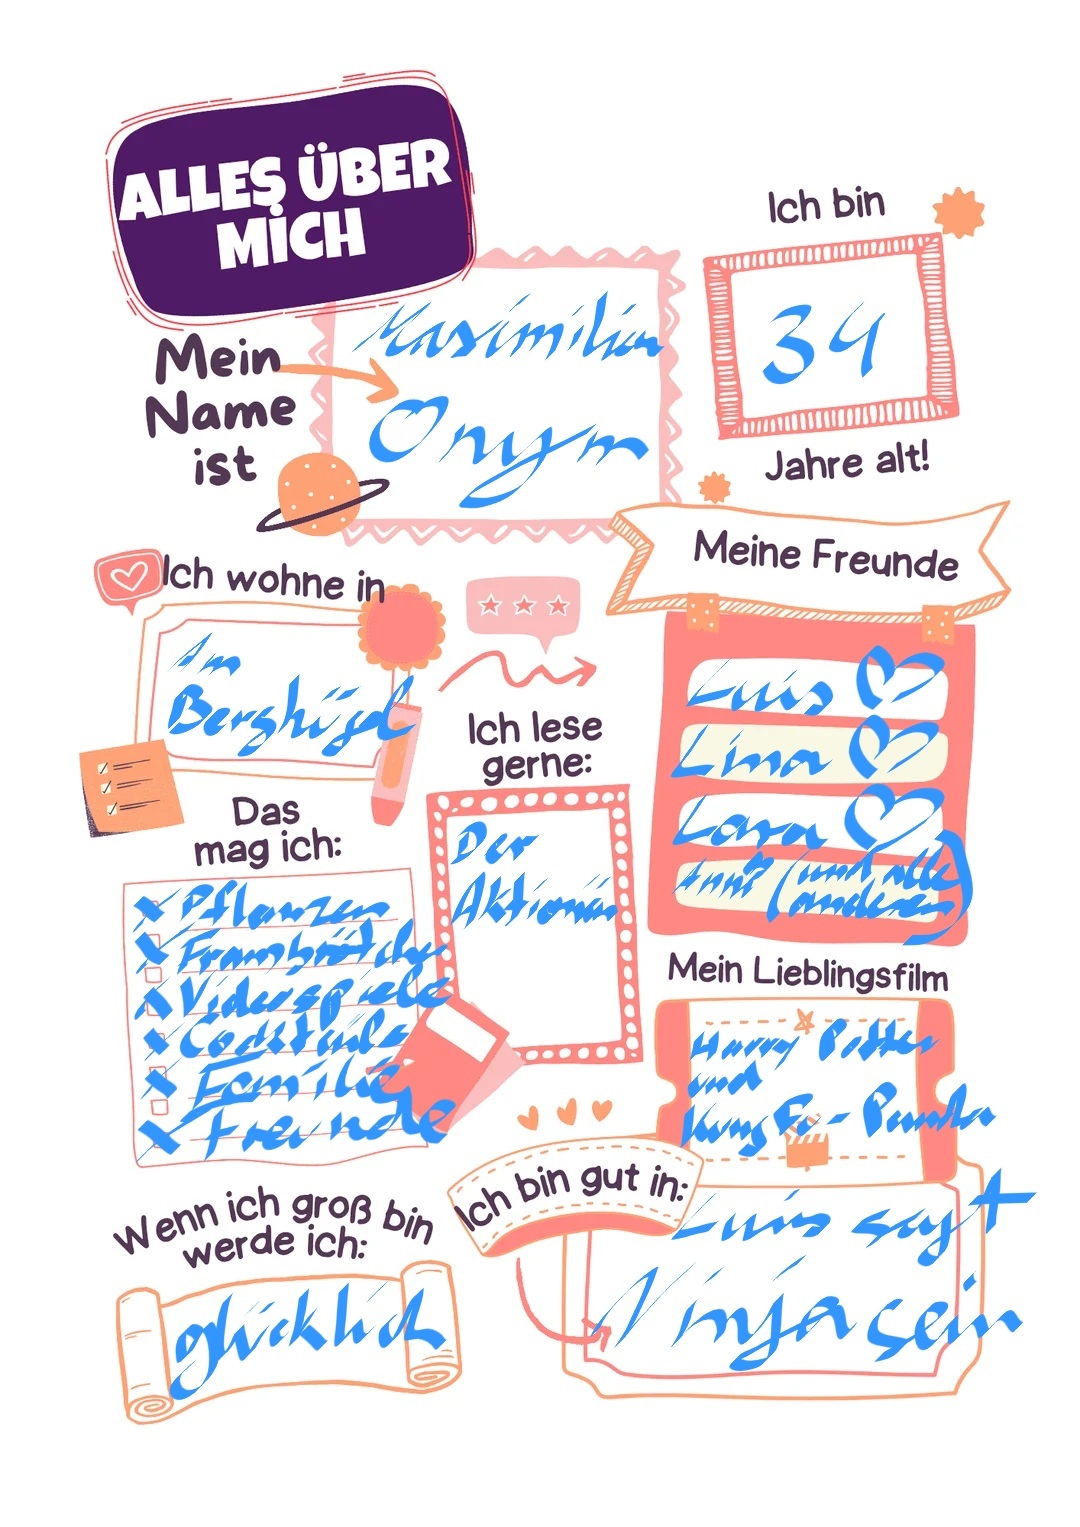 ALLES ÜBER
MICH
Mein
Name
ist
Maximilian
Onym
Ich bin
34
Jahre alt!
Ich wohne in
Am
Berghügel
Meine Freunde
Luis
Lina
Lara
(und alle
anderen)
Ich lese
gerne:
Der
Aktionär
Das
mag ich:
Pflanzen
Franzbrötchen
Videospiele
Cocktails
Familie
Freunde
Mein Lieblingsfilm
Harry Potter
und
Kung Fu-Panda
Ich bin gut in:
Luis sagt
Ninja sein
Wenn ich groß bin
werde ich:
glücklich